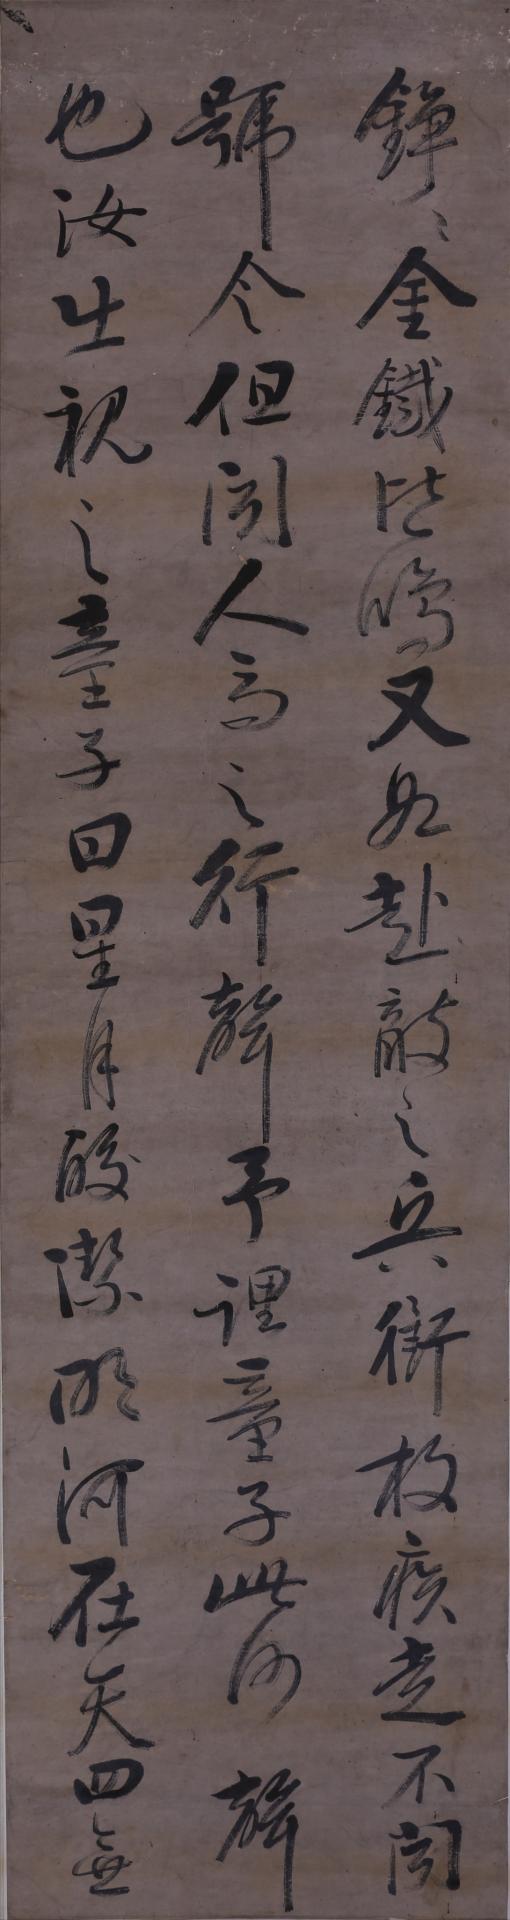 錚〻金鐵皆鳴又如赴敵之兵銜枚疾走不聞
號令但聞人馬之行聲予謂童子此何聲
也汝出視之童子曰星月皎潔明河在天四無